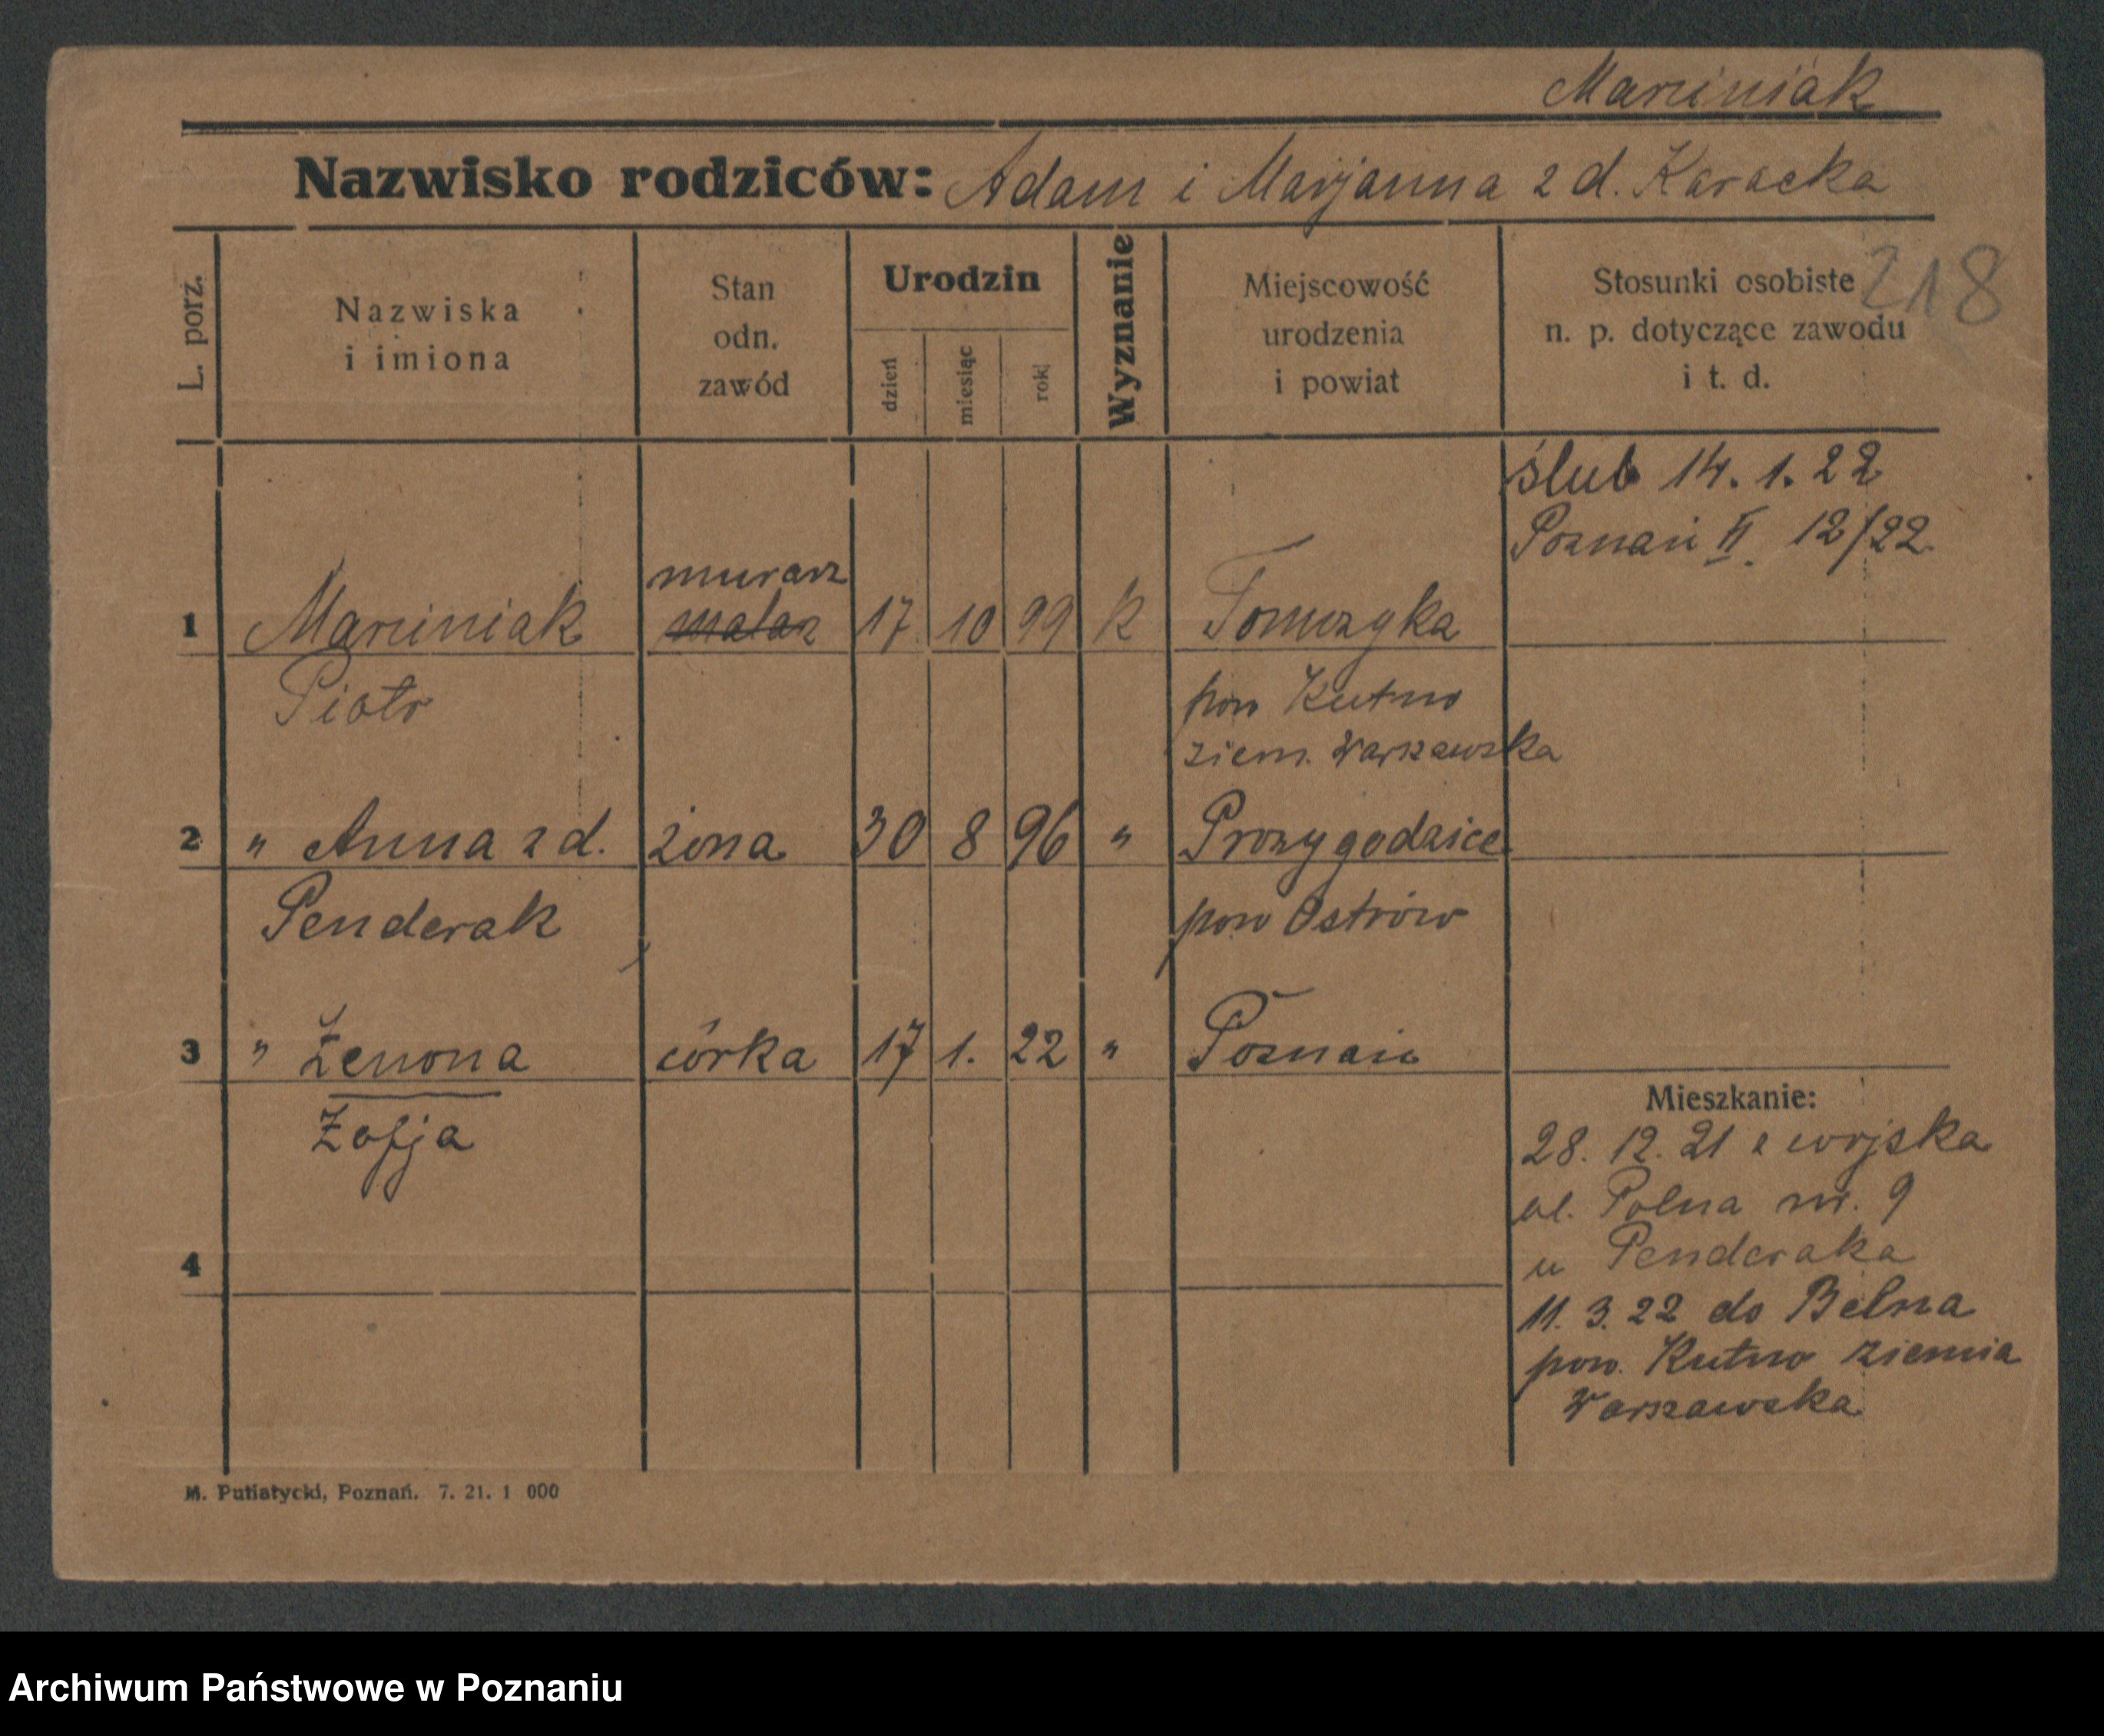 Marciniak
Nazwisko rodziców: Adam i Marjanna z d. Karacka
218
L. porz.
Nazwiska
i imiona
Stan
odn.
zawód
Urodzin
dzień
miesiąc
rok
Wyznanie
Miejscowość
urodzenia
i powiat
Stosunki osobiste
n. p. dotyczące zawodu
i t. d.
ślub 14. 1. 22
Poznań II. 12/22.
murarz
1 Marciniak malarz 17 10 99 K Tomczyka
Piotr pow Kutno
ziem. Warszawska
2 " Anna z d. żona 30 8 96 " Przygodzice
Penderak pow Ostrów
3 " Zenona córka 17 1. 22 " Poznań
Zofja
4
Mieszkanie:
28. 12. 21 z wojska
ul. Polna nr. 9
u Penderaka
11. 3. 22 do Bełna
pow. Kutno ziemia
Warszawska
M. Putiatycki, Poznań. 7. 21. 1 000
Archiwum Państwowe w Poznaniu